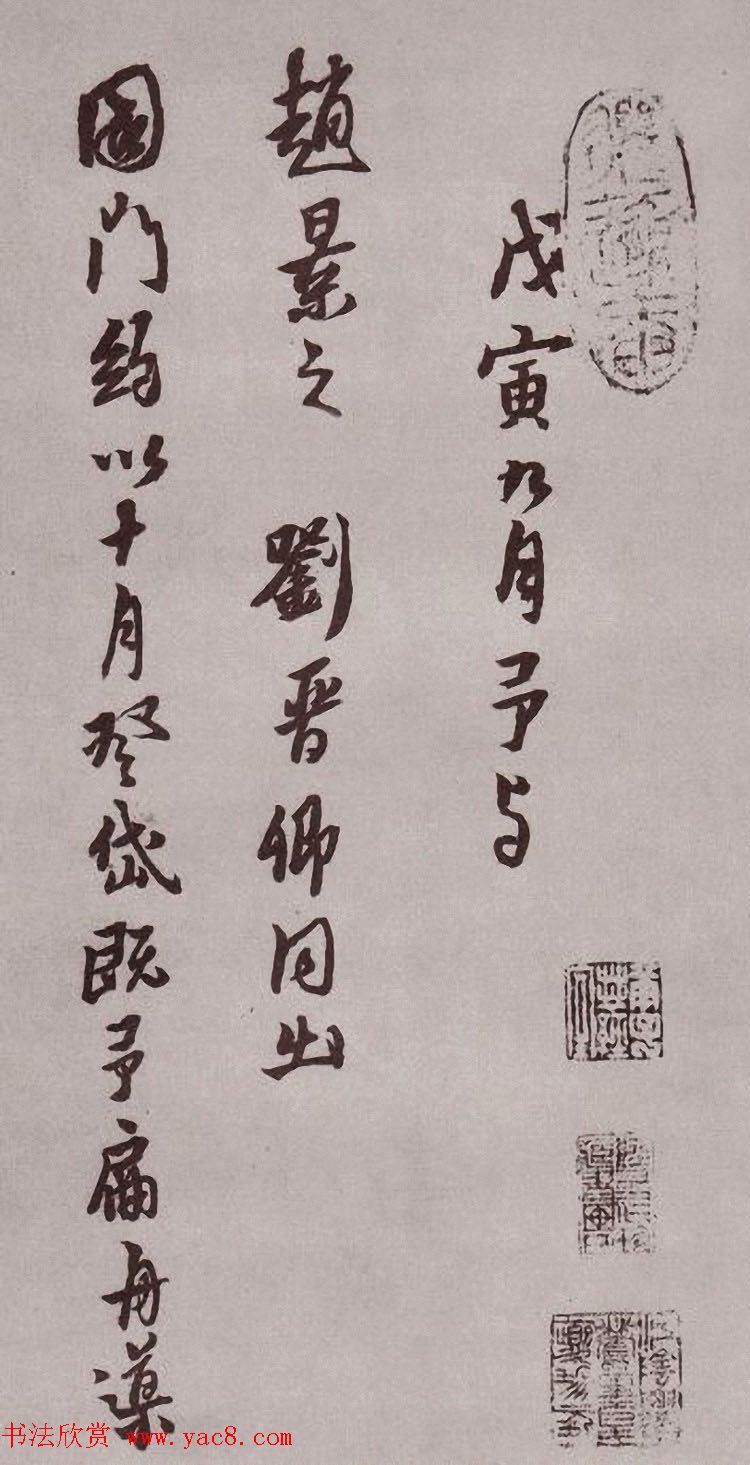 戊寅九月予与
趙景之 劉晉卿同出
國門約以十月登岱既予扁舟㵎
书法欣赏 www.yac8.com